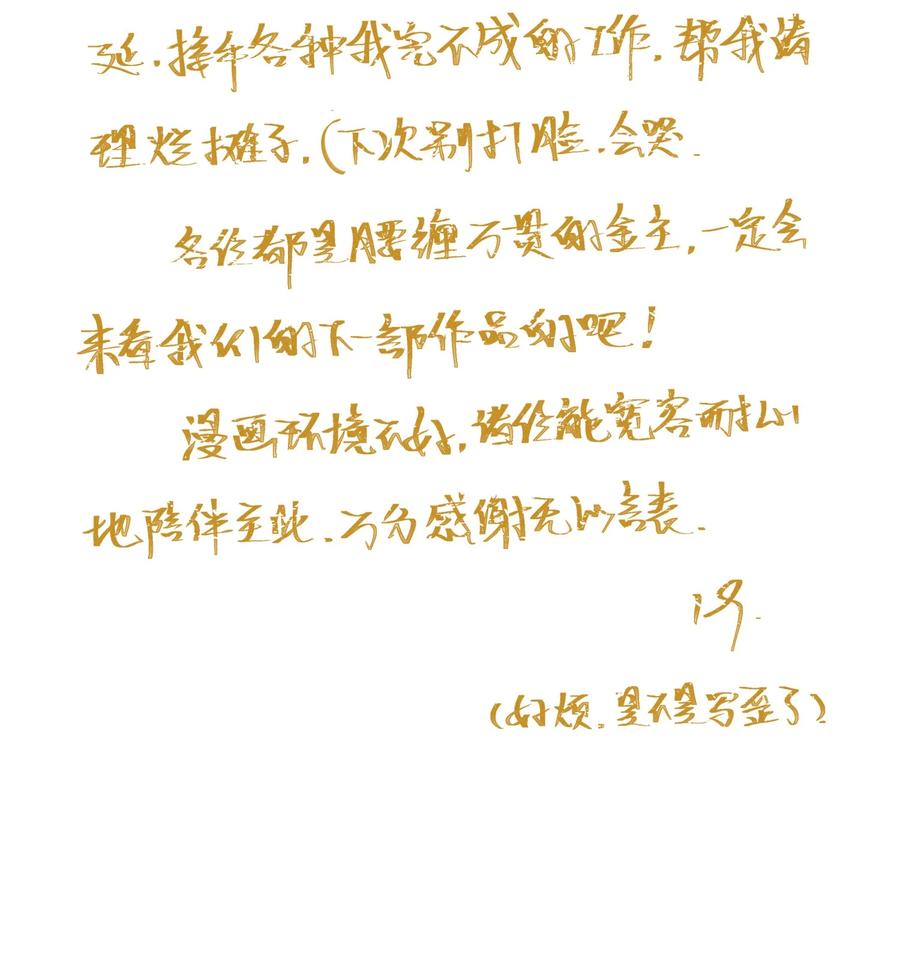 延.接手各种我完不成的工作,帮我清
理烂摊子.(下次别打脸.会哭.
各位都是腰缠万贯的金主,一定会
来看我们的下一部作品的吧!
漫画环境不好,诸位能宽容而扎心
地陪伴至此.万分感谢无以言表.
(好烦.是不是写歪了)